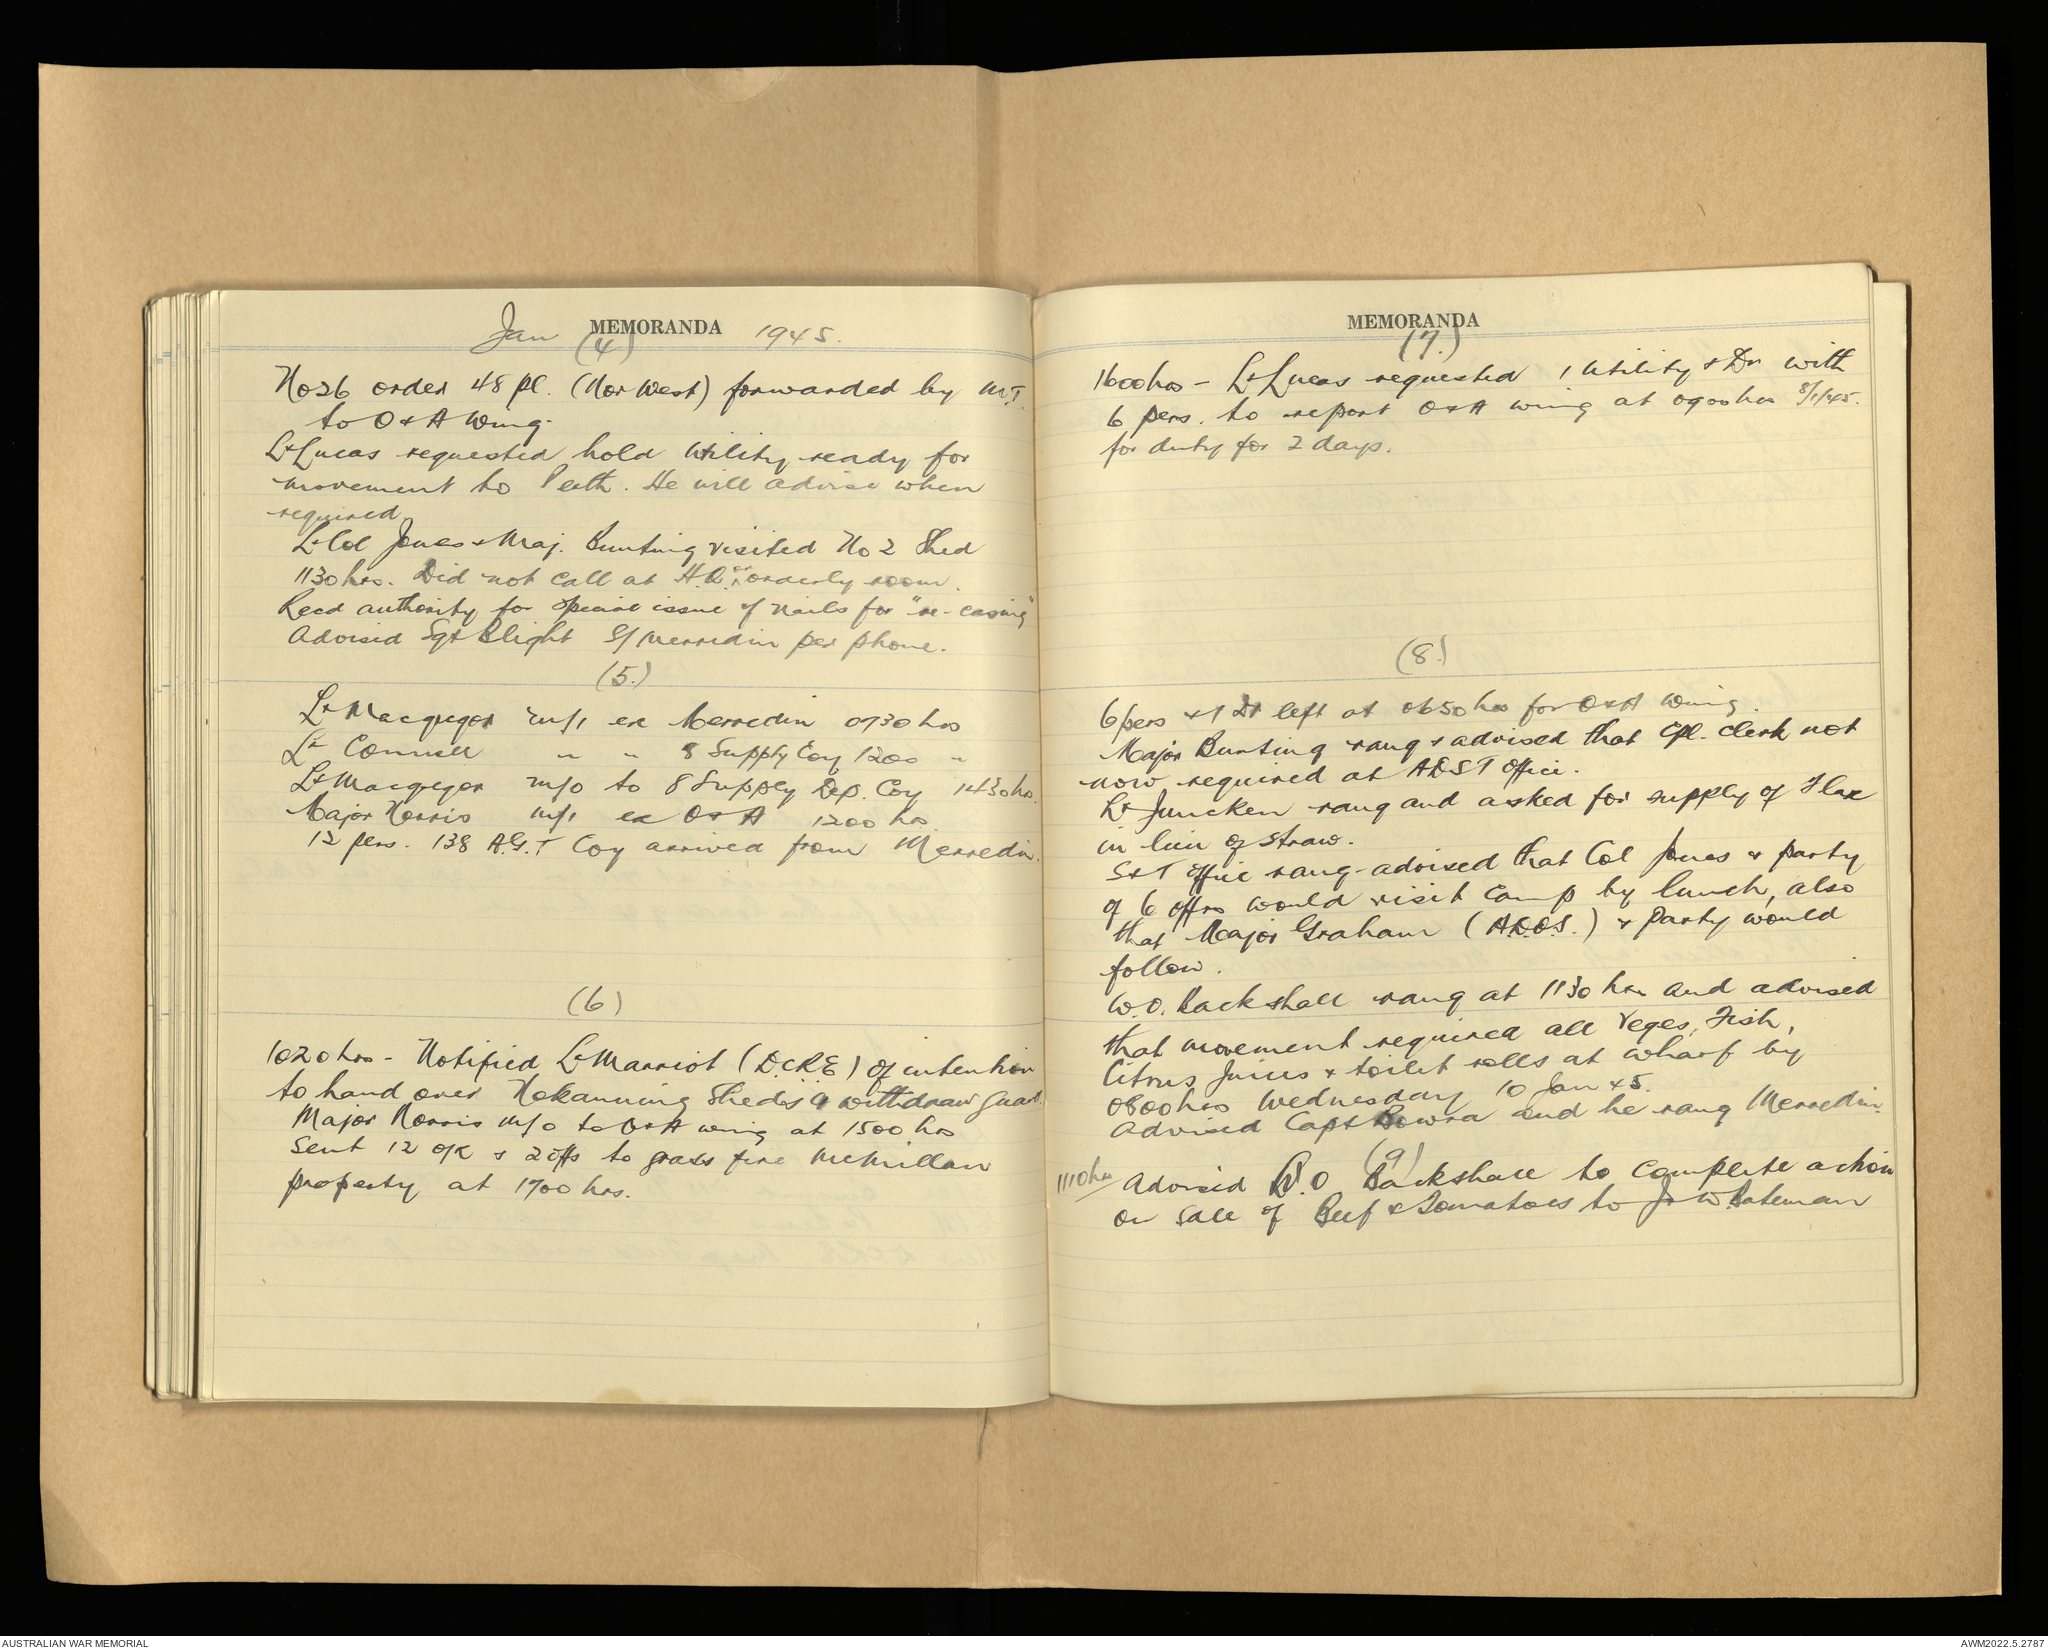 Jan MEMORANDA 1945.
(4)
No 26 order 48 pl. (Nor West) forwarded by MT.
to O & A Wing.
Lt Lucas requested hold utility ready for
movement to Perth. He will advise when
required.
Lt Col Jones & Maj. Bunting visited No 2 Shed
1130 hrs. Did not call at H.Q. or orderly room.
Recd authority for special issue of nails for "re-casing"
Advised Sgt Blight S/Merredin per phone.
(5.)
Lt Macgregor m/i ex Merredin 0730 hrs
Lt Connell " " 8 Supply Coy 1200 "
Lt Macgregor m/o to 8 Supply Dep. Coy 1430 hrs.
Major Norris m/i ex O & A 1200 hrs
12 pers. 138 A.G.T Coy arrived from Merredin.
(6)
1020 hrs - Notified Lt Marriot (D.CRE) of intention
to hand over Nokanning Sheds & withdraw guard.
Major Norris m/o to O & A wing at 1500 hrs
Sent 12 O/R & 2 offs to grass fire McMillan
property at 1700 hrs.
MEMORANDA
(7.)
1600 hrs - Lt Lucas requested 1 utility & Dr with
6 pers. to report O & A wing at 0900 hrs 8/1/45.
for duty for 2 days.
(8.)
6 pers & 1 Dr left at 0650 hrs for O & A Wing.
Major Bunting rang & advised that Cpl. clerk not
now required at ADST office.
Lt Juncken rang and asked for supply of Flax
in lieu of straw.
S & T office rang - advised that Col Jones & party
of 6 offrs would visit camp by lunch, also
that Major Graham (A.D.O.S.) & party would
follow.
W.O. Backshall rang at 1130 hrs and advised
that movement required all Veges, Fish,
Citrus Juices & toilet rolls at wharf by
0800 hrs Wednesday 10 Jan 45.
Advised Capt Bowra and he rang Merredin.
(9)
1110 hrs Advised W.O Backshall to complete action
on sale of Beef & Tomatoes to J & W. Bateman
AUSTRALIAN WAR MEMORIAL
AWM2022.5.2787